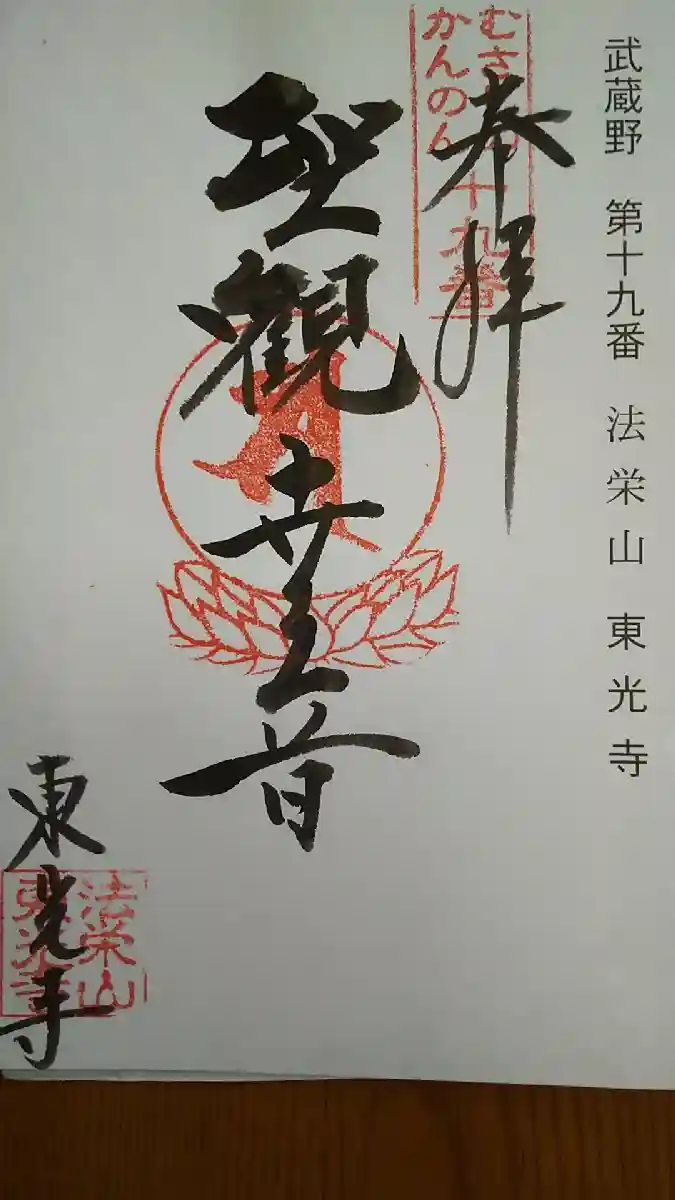 武蔵野 第十九番 法栄山 東光寺
奉拝
むさしの
かんのん
十九番
聖觀世音
東光寺
法栄山
東光寺